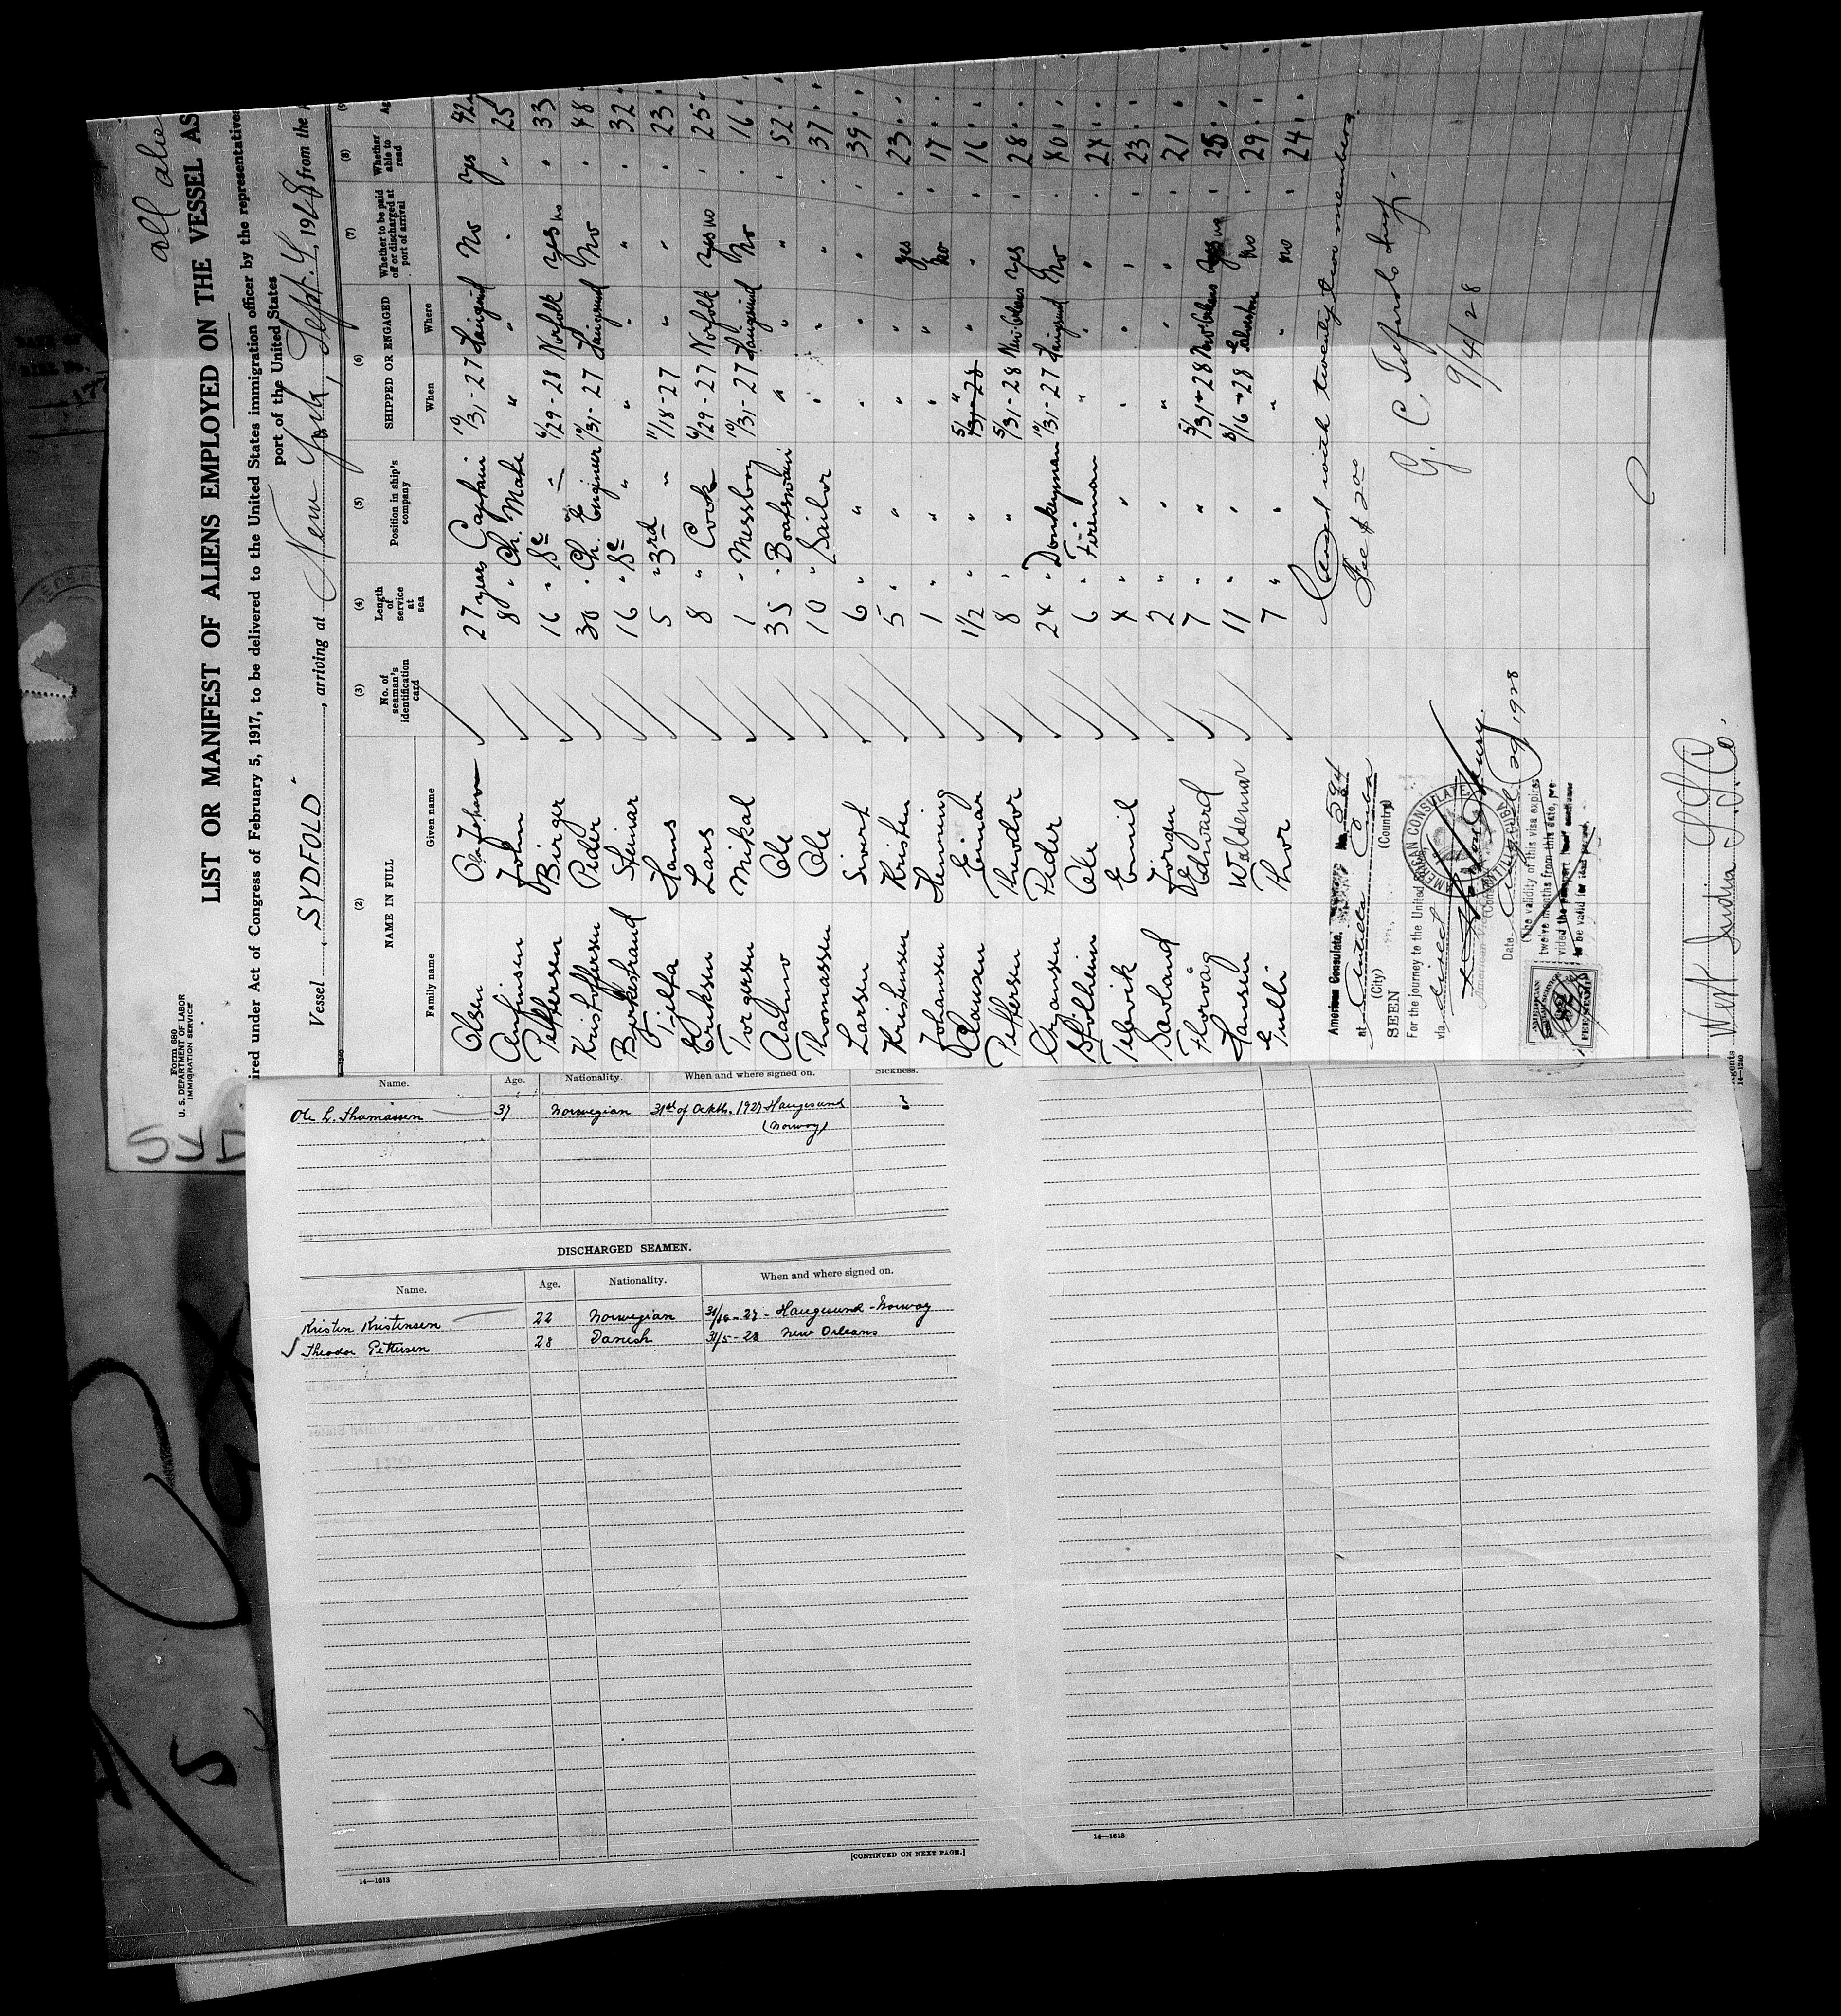 all alie
LIST OR MANIFEST OF ALIENS EMPLOYED ON THE VESSEL AS
Form 680
U. S. DEPARTMENT OF LABOR
IMMIGRATION SERVICE
ired under Act of Congress of February 5, 1917, to be delivered to the United States immigration officer by the representative
port of the United States
Vessel SYDFOLD, arriving at New York, Sept. 4, 1928, from the
(2) (3) (4) (5) (6) (7) (8)
NAME IN FULL No. of seaman's identification card Length of service at sea Position in ship's company SHIPPED OR ENGAGED Whether to be paid off or discharged at port of arrival Whether able to read Ag
Family name Given name When Where
Olsen Ola Johan 27 years Captain 10/31-27 Haugsund No yes 42
Anfinsen John 8 " Ch. Mate " " " " 25
Pettersen Birger 16 " 6/29-28 Norfolk yes no " 33
Kristoffersen Peder 30 " Ch. Engineer 10/31-27 Haugsund No " 48
Bjerkestrand Steinar 16 " " " " " 32
Tjelta Hans 5 " 3rd " 11/18-27 " " " 23
Eriksen Lars 8 " Cook 6/29-27 Norfolk yes no " 25
Torgersen Mikal 1 " Messboy 10/31-27 Haugsund No " 16
Aalmo Ole 35 " Boatswain " " " " 52
Thomassen Ole 10 " Sailor " " " " 37
Larsen Sivert 6 " " " " " " 39
Kristensen Kristen 5 " " " " yes " 23
Johansen Henning 1 " " " " No " 17
Clausen Einar 1/2 " " 5/31-28 " " " 16
Pettersen Theodor 8 " " 5/31-28 New Orleans yes " 28
Peder 24 " Donkeyman 10/31-27 Haugsund No " 40
Stolheim Ole 6 " Fireman " " " " 24
Televik Emil 4 " " " " " " 23
Savland Jørgen 2 " " " " " " 21
Florvåg Edward 7 " " 5/31-28 New Orleans yes no " 25
Hansen Waldemar 11 " " 8/16-28 Galveston No " 29
Gulli Thor 7 " " " " no " 24
Closed with twenty two members.
Fee $2.00
9/4/28
American Consulate, No. 594
at Antilla Cuba
(City) (Country)
SEEN
For the journey to the United
via direct
AMERICAN CONSULATE
Date Aug. 29, 1928
(The validity of this visa expires
twelve months from this date, pro-
vided the passport
to be valid for that period.
agents West India S.S. Co.
14-1240
SYD
Name. Age. Nationality. When and where signed on. Sickness.
Ole L. Thomassen 37 Norwegian 31st of Octb. 1927 Haugesund ?
(Norway)
DISCHARGED SEAMEN.
Name. Age. Nationality. When and where signed on.
Kristen Kristensen 22 Norwegian 31/10-27 - Haugesund - Norway
Theodor Pettersen 28 Danish 31/5-28 New Orleans
[CONTINUED ON NEXT PAGE.]
14—1613
14—1613